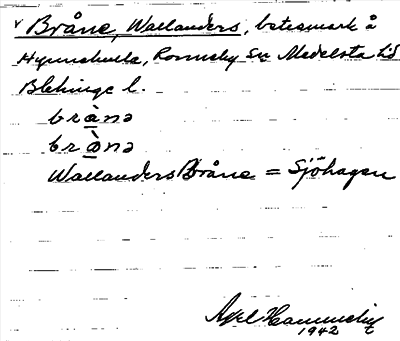 v Bråne, Wallanders, betesmark å
Hymnekulla, Ronneby Sn Medelsta hd
Blekinge l.
brånə
brånə
Wallanders Bråne = Sjöhagen
Axel Hammelig
1942